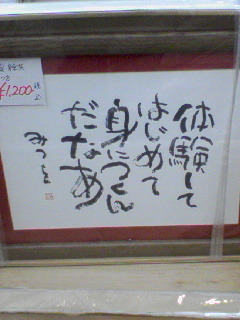 体験して
はじめて
身につくん
だなあ
みつを
¥1,200